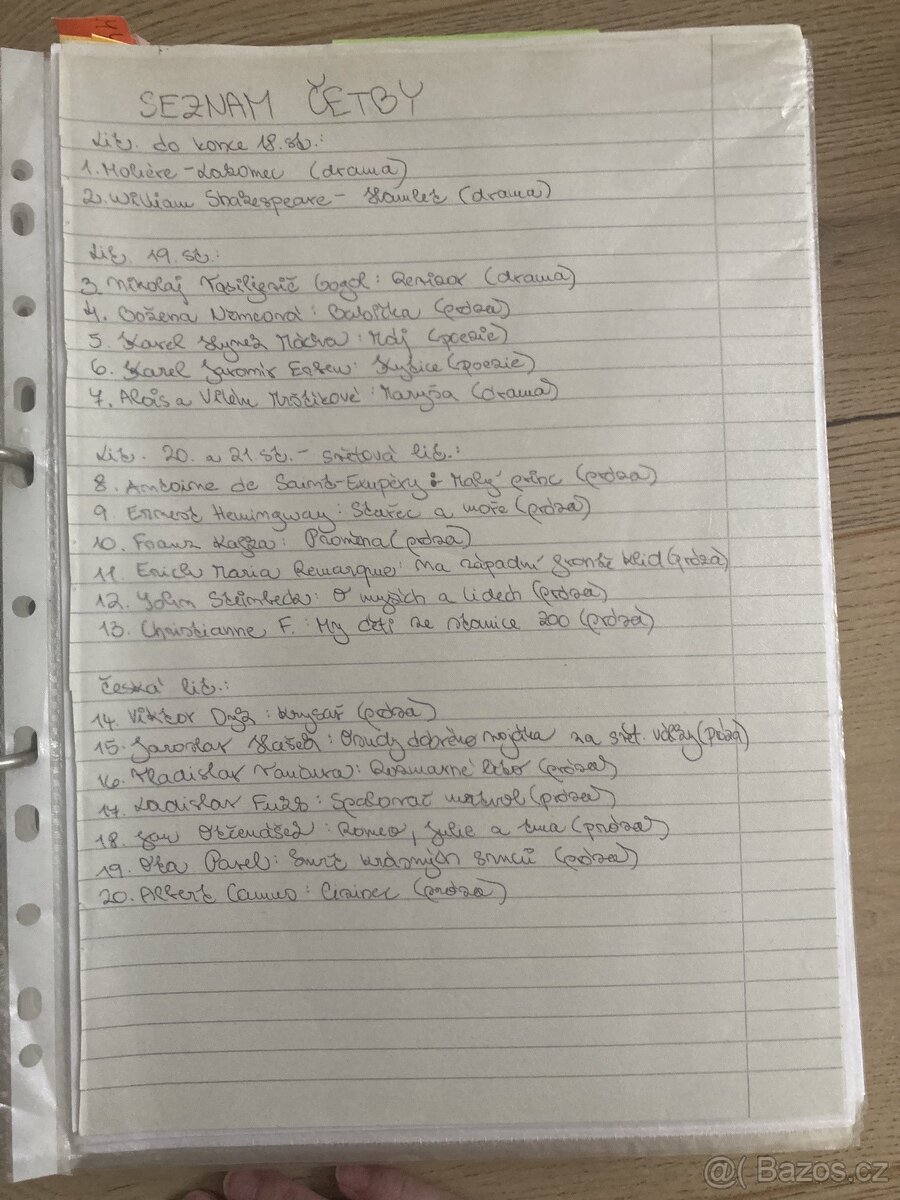 SEZNAM ČETBY
Lit. do konce 18. st.:
1. Molière - Lakomec (drama)
2. William Shakespeare - Hamlet (drama)
Lit. 19. st.:
3. Nikolaj Vasiljevič Gogol: Revizor (drama)
4. Božena Němcová: Babička (próza)
5. Karel Hynek Mácha: Máj (poezie)
6. Karel Jaromír Erben: Kytice (poezie)
7. Alois a Vilém Mrštíkové: Maryša (drama)
Lit. 20. a 21. st. - světová lit.:
8. Antoine de Saint-Exupéry: Malý princ (próza)
9. Ernest Hemingway: Stařec a moře (próza)
10. Franz Kafka: Proměna (próza)
11. Erich Maria Remarque: Na západní frontě klid (próza)
12. John Steinbeck: O myších a lidech (próza)
13. Christianne F.: My děti ze stanice ZOO (próza)
Česká lit.:
14. Viktor Dyk: Krysař (próza)
15. Jaroslav Hašek: Osudy dobrého vojáka za svět. války (próza)
16. Vladislav Vančura: Rozmarné léto (próza)
17. Ladislav Fuks: Spalovač mrtvol (próza)
18. Jan Otčenášek: Romeo, Julie a tma (próza)
19. Ota Pavel: Smrt krásných srnců (próza)
20. Albert Camus: Cizinec (próza)
@( Bazoš.cz